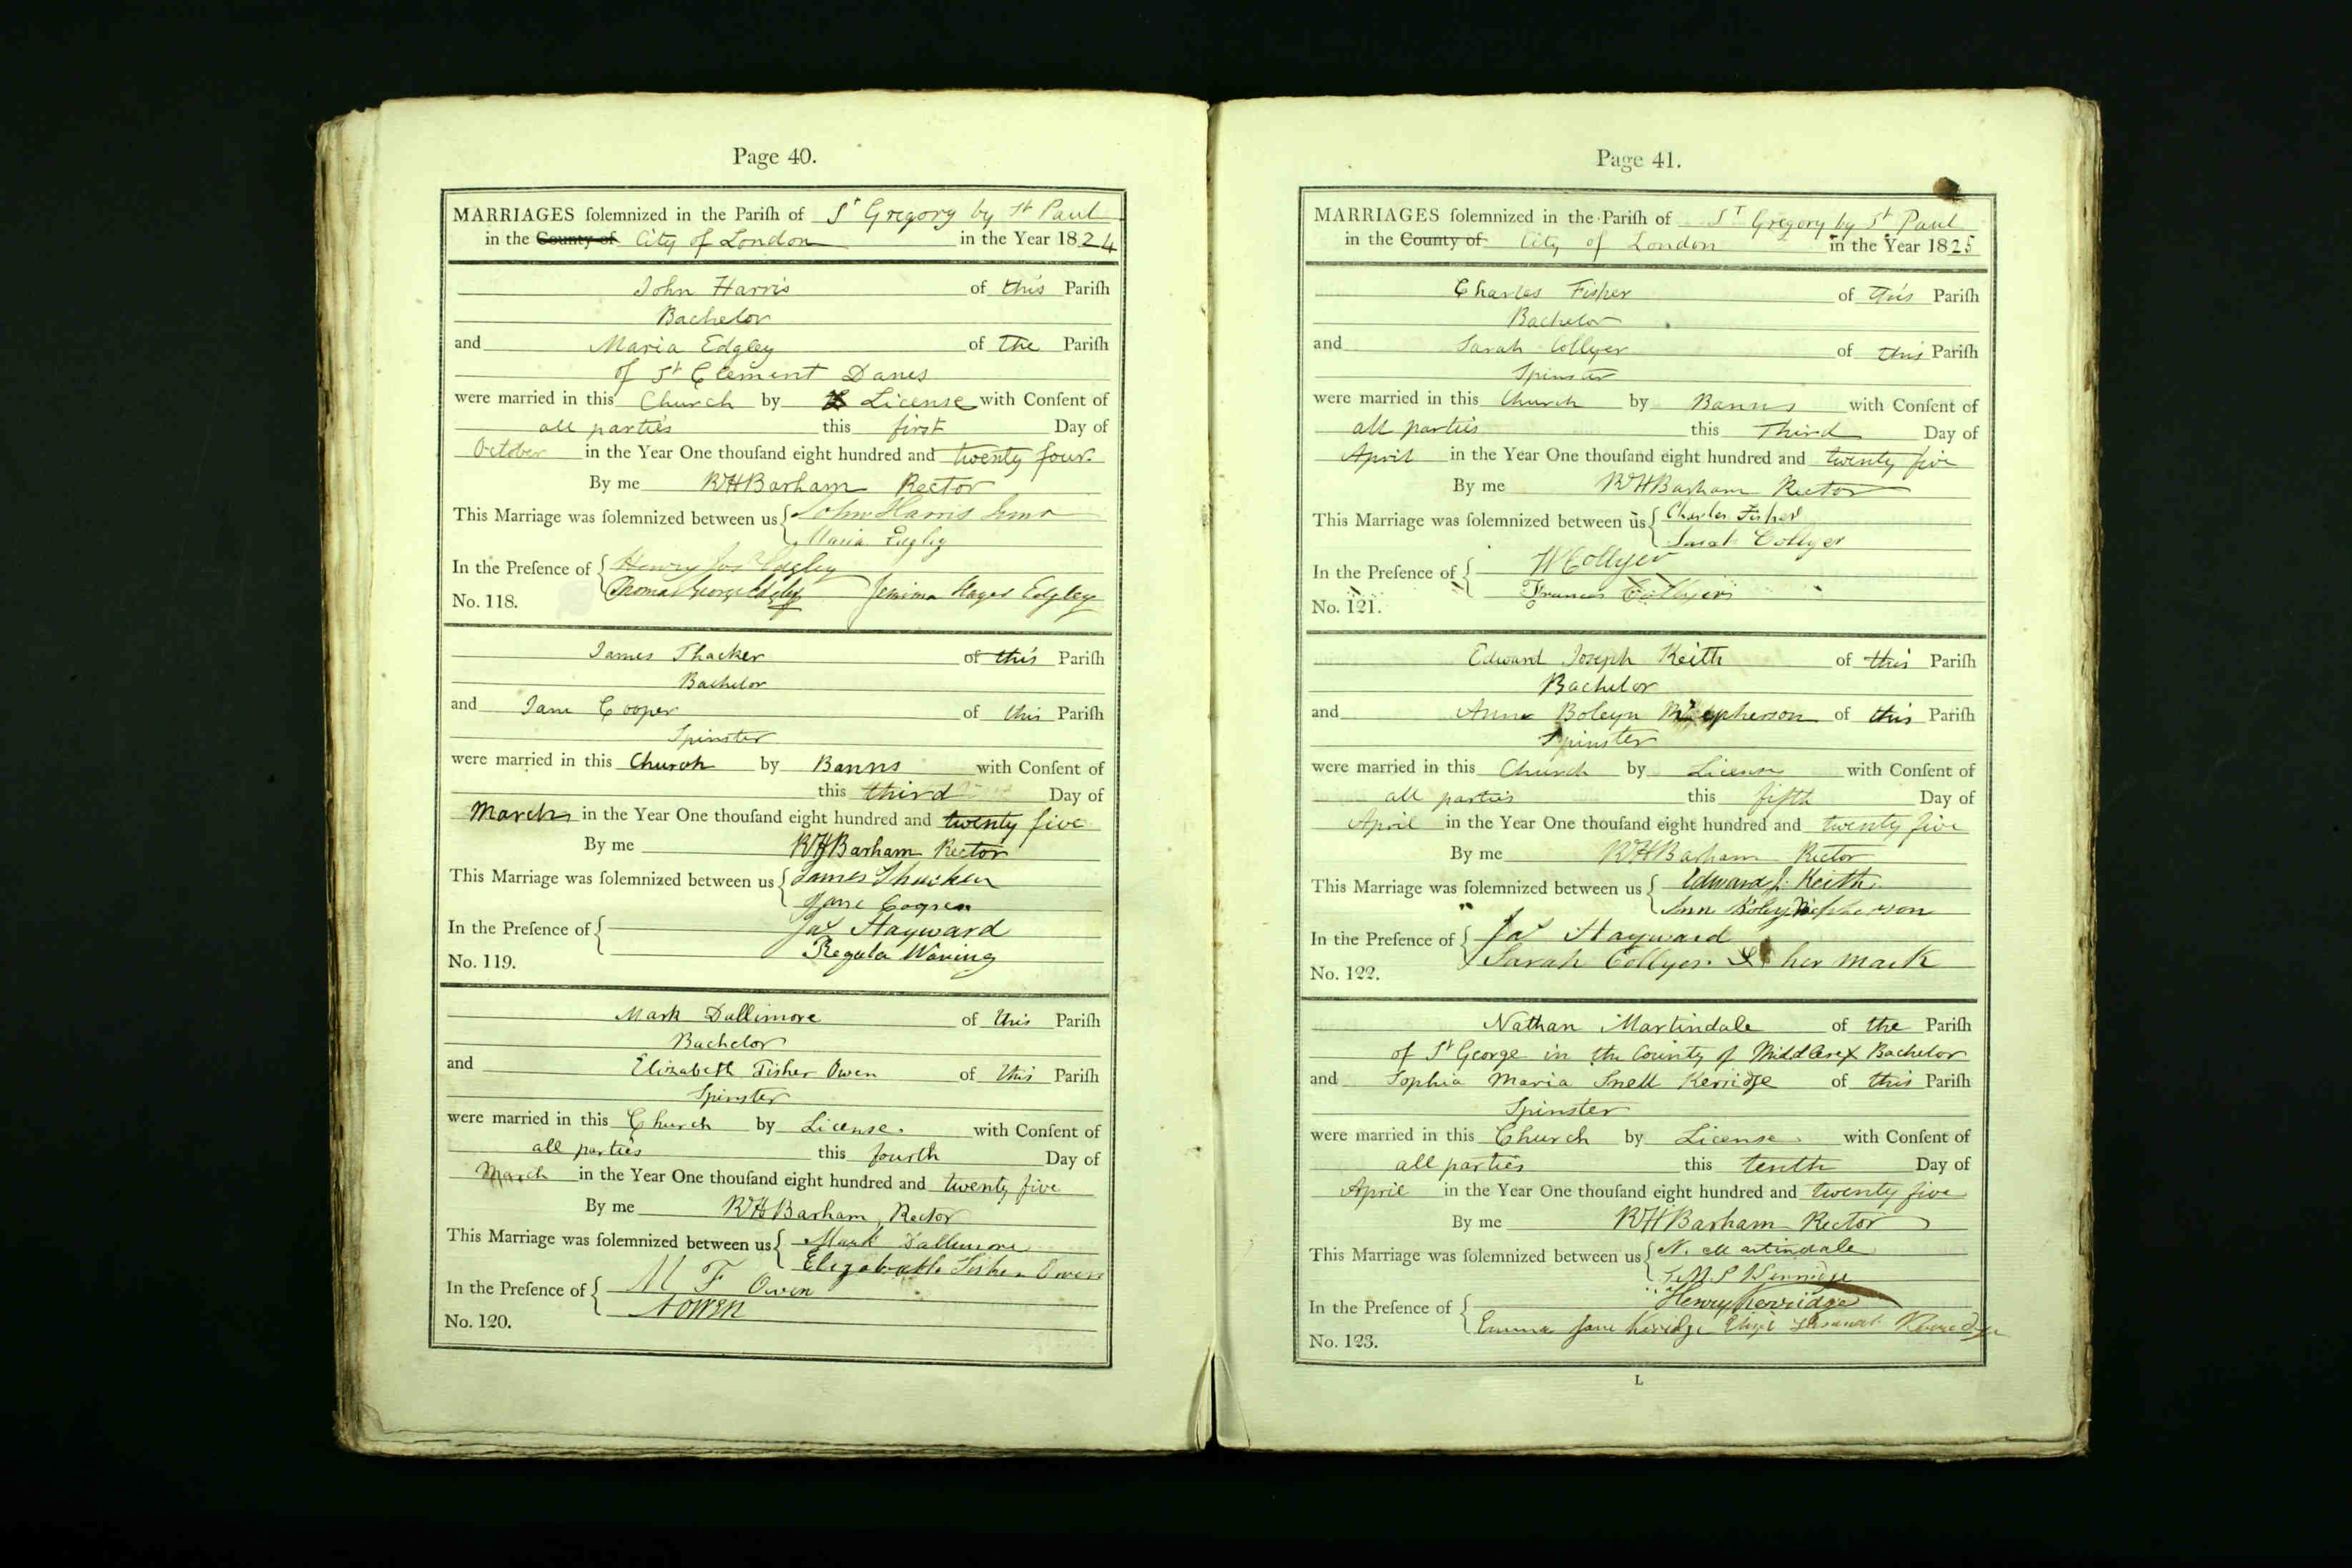 Page 40.
MARRIAGES ſolemnized in the Pariſh of St Gregory by St Paul
in the County of City of London in the Year 1824
John Harris of this Pariſh
Bachelor
and Maria Edgley of the Pariſh
of St Clement Danes
were married in this Church by License with Conſent of
all parties this first Day of
October in the Year One thouſand eight hundred and twenty four.
By me RHBarham Rector
This Marriage was ſolemnized between us John Harris Junr
Maria Edgley
In the Preſence of Henry Jos Edgley
Thomas George Edgley Jemima Hayes Edgley
No. 118.
James Thacker of this Pariſh
Bachelor
and Jane Cooper of this Pariſh
Spinster
were married in this Church by Banns with Conſent of
this third Day of
March in the Year One thouſand eight hundred and twenty five
By me RHBarham Rector
This Marriage was ſolemnized between us James Thacker
Jane Cooper
In the Preſence of Jas Hayward
Regula Waring
No. 119.
Mark Dallimore of this Pariſh
Bachelor
and Elizabeth Fisher Owen of this Pariſh
Spinster
were married in this Church by License. with Conſent of
all parties this fourth Day of
March in the Year One thouſand eight hundred and twenty five
By me RHBarham, Rector
This Marriage was ſolemnized between us Mark Dallimore
Elizabeth Fisher Owen
In the Preſence of M F Owen
A OWEN
No. 120.
Page 41.
MARRIAGES ſolemnized in the Pariſh of St Gregory by St Paul
in the County of City of London in the Year 1825
Charles Fisher of this Pariſh
Bachelor
and Sarah Collyer of this Pariſh
Spinster
were married in this Church by Banns with Conſent of
all parties this Third Day of
April in the Year One thouſand eight hundred and twenty five
By me RHBarham Rector
This Marriage was ſolemnized between us Charles Fisher
Sarah Collyer
In the Preſence of W Collyer
Frances Collyer
No. 121.
Edward Joseph Keith of this Pariſh
Bachelor
and Anne Boleyn Mcpherson of this Pariſh
Spinster
were married in this Church by License with Conſent of
all parties this fifth Day of
April in the Year One thouſand eight hundred and twenty five
By me RHBarham Rector
This Marriage was ſolemnized between us Edward J. Keith.
Ann Boleyn Mcpherson
In the Preſence of Jas Hayward
Sarah Collyer. her mark
No. 122.
Nathan Martindale of the Pariſh
of St George in the County of Middlesex Bachelor
and Sophia Maria Snell Kerridge of this Pariſh
Spinster
were married in this Church by License. with Conſent of
all parties this tenth Day of
April in the Year One thouſand eight hundred and twenty five
By me RHBarham Rector
This Marriage was ſolemnized between us N. Martindale
S.M.S Kerridge
Henry Kerridge
In the Preſence of
Emma Jane Kerridge Kerridge
No. 123.
L